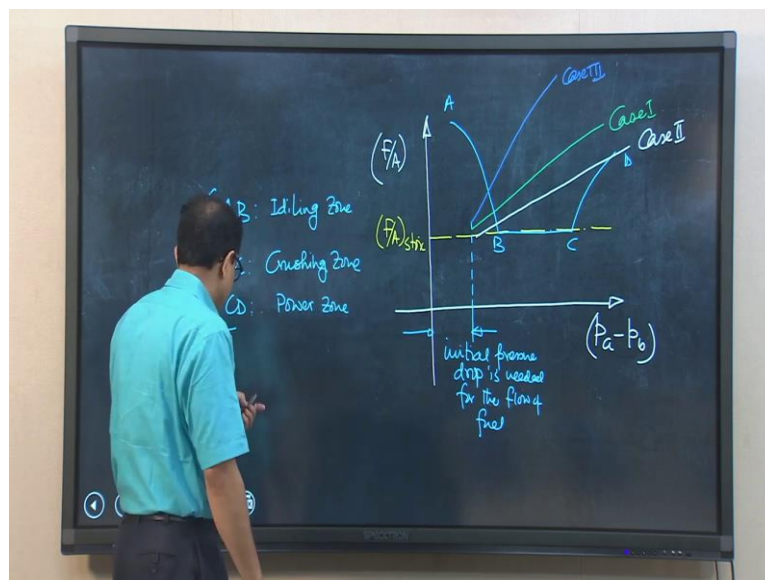 AB: Idiling Zone
: Crushing Zone
CD: Power Zone
(F/A)
(F/A)stoic
A
B
C
D
Case III
Case I
Case II
(Pa-Pb)
initial pressure
drop is needed
for the flow of
fuel